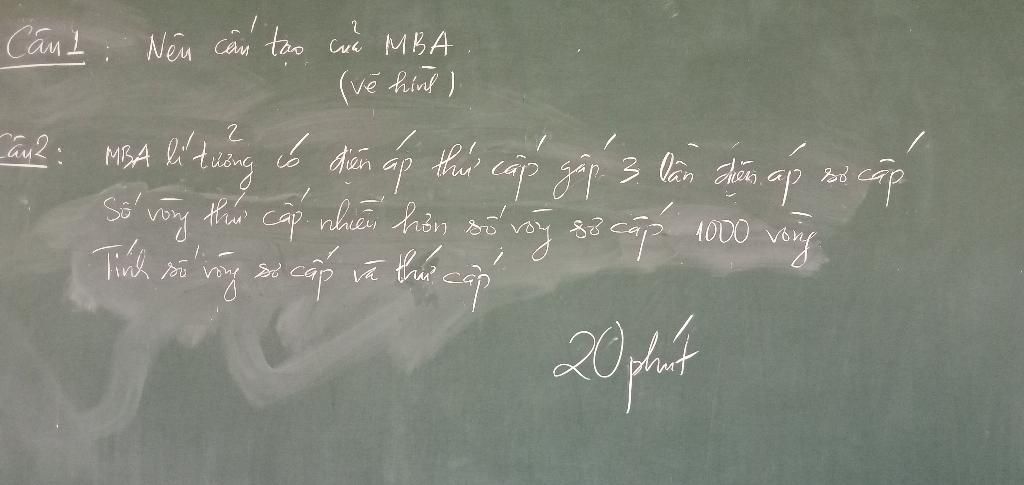 Câu 1 : Nêu cấu tạo của MBA.
(vẽ hình)
Câu 2 : MBA lí tưởng có điện áp thứ cấp gấp 3 lần điện áp sơ cấp
Số vòng thứ cấp nhiều hơn số vòng sơ cấp 1000 vòng.
Tính số vòng sơ cấp và thứ cấp
20 phút